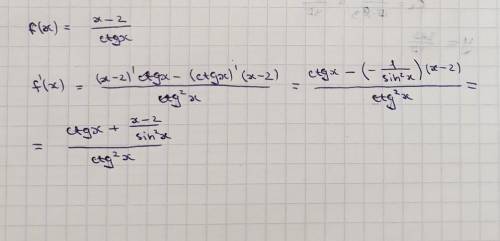 f(x) = (x-2)/(ctgx)
f'(x) = ((x-2)' ctgx - (ctgx)' (x-2))/(ctg²x) = (ctgx - (-1/(sin²x))(x-2))/(ctg²x) =
= (ctgx + (x-2)/(sin²x))/(ctg²x)